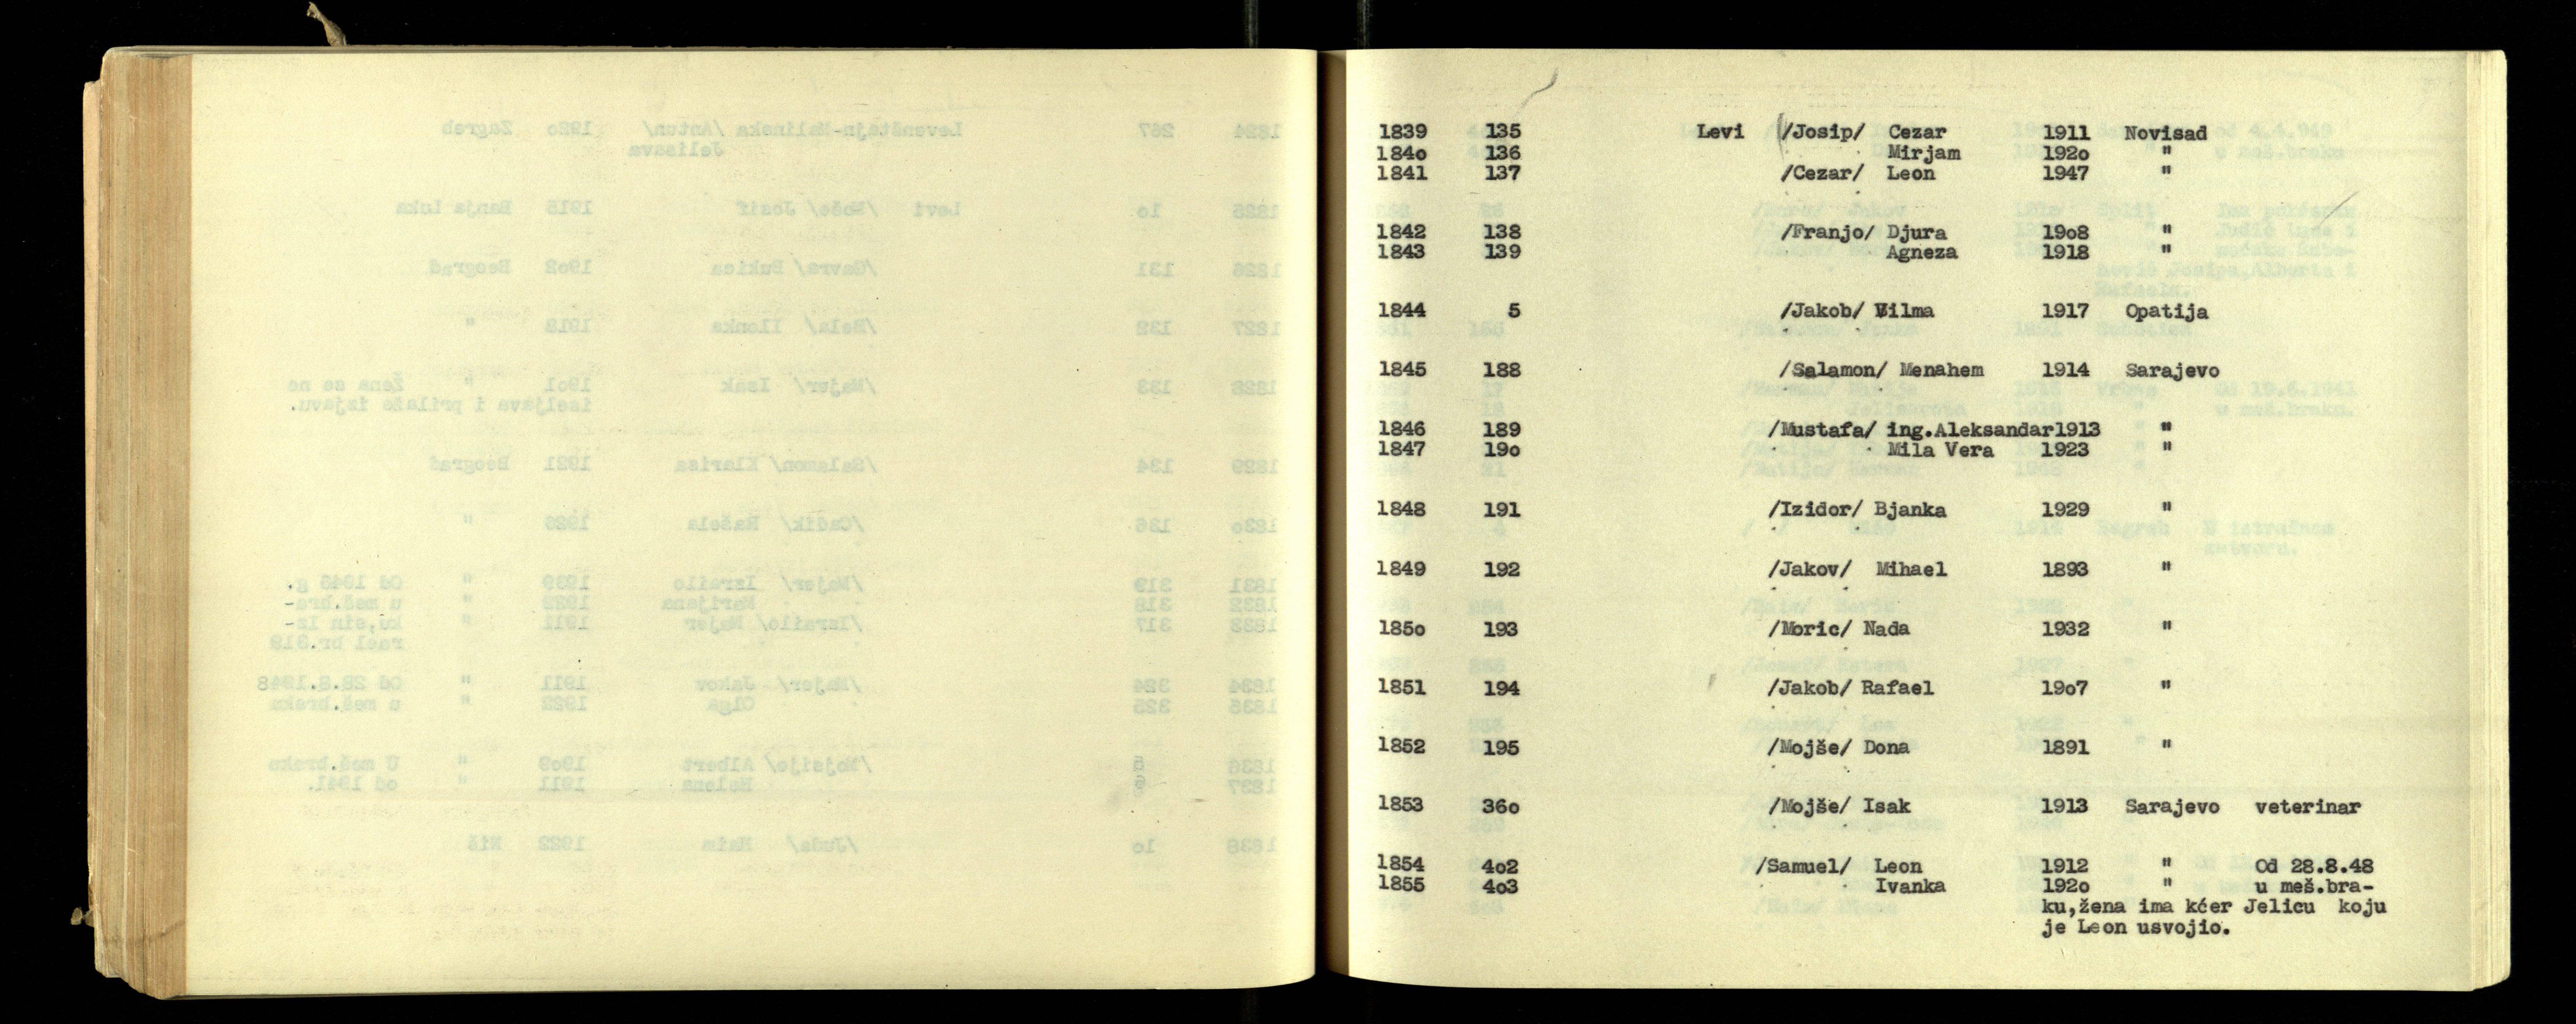 1839 135 Levi /Josip/ Cezar 1911 Novisad
184o 136 Mirjam 192o "
1841 137 /Cezar/ Leon 1947 "
1842 138 /Franjo/ Djura 19o8 "
1843 139 Agneza 1918 "
1844 5 /Jakob/ Vilma 1917 Opatija
1845 188 /Salamon/ Menahem 1914 Sarajevo
1846 189 /Mustafa/ ing.Aleksandar1913 "
1847 19o Mila Vera 1923 "
1848 191 /Izidor/ Bjanka 1929 "
1849 192 /Jakov/ Mihael 1893 "
185o 193 /Moric/ Nada 1932 "
1851 194 /Jakob/ Rafael 19o7 "
1852 195 /Mojše/ Dona 1891 "
1853 36o /Mojše/ Isak 1913 Sarajevo veterinar
1854 4o2 /Samuel/ Leon 1912 " Od 28.8.48
1855 4o3 Ivanka 192o " u meš.bra-
ku,žena ima kćer Jelicu koju
je Leon usvojio.